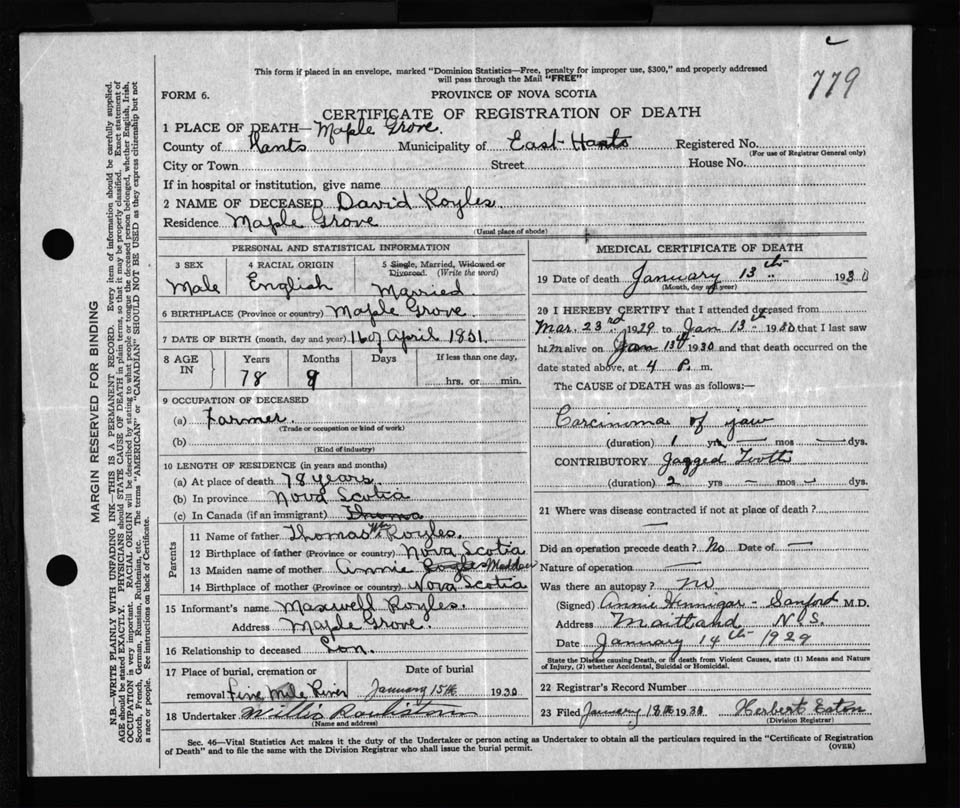 c
779
This form if placed in an envelope, marked "Dominion Statistics—Free, penalty for improper use, $300," and properly addressed
will pass through the Mail "FREE"
FORM 6.
PROVINCE OF NOVA SCOTIA
CERTIFICATE OF REGISTRATION OF DEATH
1 PLACE OF DEATH— Maple Grove.
County of Hants Municipality of East Hants Registered No.
(For use of Registrar General only)
City or Town Street House No.
If in hospital or institution, give name
2 NAME OF DECEASED David Royles
Residence Maple Grove
(Usual place of abode)
PERSONAL AND STATISTICAL INFORMATION
3 SEX 4 RACIAL ORIGIN 5 Single, Married, Widowed or
Divorced. (Write the word)
Male English Married
6 BIRTHPLACE (Province or country) Maple Grove.
7 DATE OF BIRTH (month, day and year) 16 of April 1851.
8 AGE IN Years Months Days If less than one day,
78 9 hrs. or min.
9 OCCUPATION OF DECEASED
(a) Farmer.
(Trade or occupation or kind of work)
(b)
(Kind of industry)
10 LENGTH OF RESIDENCE (in years and months)
(a) At place of death 78 years.
(b) In province Nova Scotia
(c) In Canada (if an immigrant) Thoma
Parents
11 Name of father Thomas Wm Royles.
12 Birthplace of father (Province or country) Nova Scotia
13 Maiden name of mother Annie Royles Madden
14 Birthplace of mother (Province or country) Nova Scotia
15 Informant's name Maxwell Royles.
Address Maple Grove.
16 Relationship to deceased Son.
17 Place of burial, cremation or Date of burial
removal Five Mile River January 15th 1930
18 Undertaker Willis
(Name and address)
MEDICAL CERTIFICATE OF DEATH
19 Date of death January 13th 1930
(Month, day and year)
20 I HEREBY CERTIFY that I attended deceased from
Mar. 23rd 1929 to Jan 13th 1930 that I last saw
him alive on Jan 13th 1930 and that death occurred on the
date stated above, at 4 P. m.
The CAUSE of DEATH was as follows:—
Carcinoma of jaw
(duration) 1 yrs — mos — dys.
CONTRIBUTORY Jagged Tooth
(duration) 2 yrs — mos — dys.
21 Where was disease contracted if not at place of death?
—
Did an operation precede death? No Date of —
Nature of operation —
Was there an autopsy? No
(Signed) Annie Hennigar - Sanford M.D.
Address Maitland N.S.
Date January 14th 1929
State the Disease causing Death, or in death from Violent Causes, state (1) Means and Nature
of Injury, (2) whether Accidental, Suicidal or Homicidal.
22 Registrar's Record Number
23 Filed January 18th 1930 Herbert Eaton
(Division Registrar)
Sec. 46—Vital Statistics Act makes it the duty of the Undertaker or person acting as Undertaker to obtain all the particulars required in the "Certificate of Registration
of Death" and to file the same with the Division Registrar who shall issue the burial permit. (OVER)
MARGIN RESERVED FOR BINDING
N.B.—WRITE PLAINLY WITH UNFADING INK—THIS IS A PERMANENT RECORD. Every item of information should be carefully supplied.
AGE should be stated EXACTLY. PHYSICIANS should STATE CAUSE OF DEATH in plain terms, so that it may be properly classified. Exact statement of
OCCUPATION is very important. RACIAL ORIGIN will be described by stating to what people or tongue the deceased person belonged, whether English, Irish,
Scotch, French, German, Russian, Ruthenian, etc. The terms "AMERICAN" or "CANADIAN" SHOULD NOT BE USED as they express citizenship but not
a race or people. See instructions on back of Certificate.